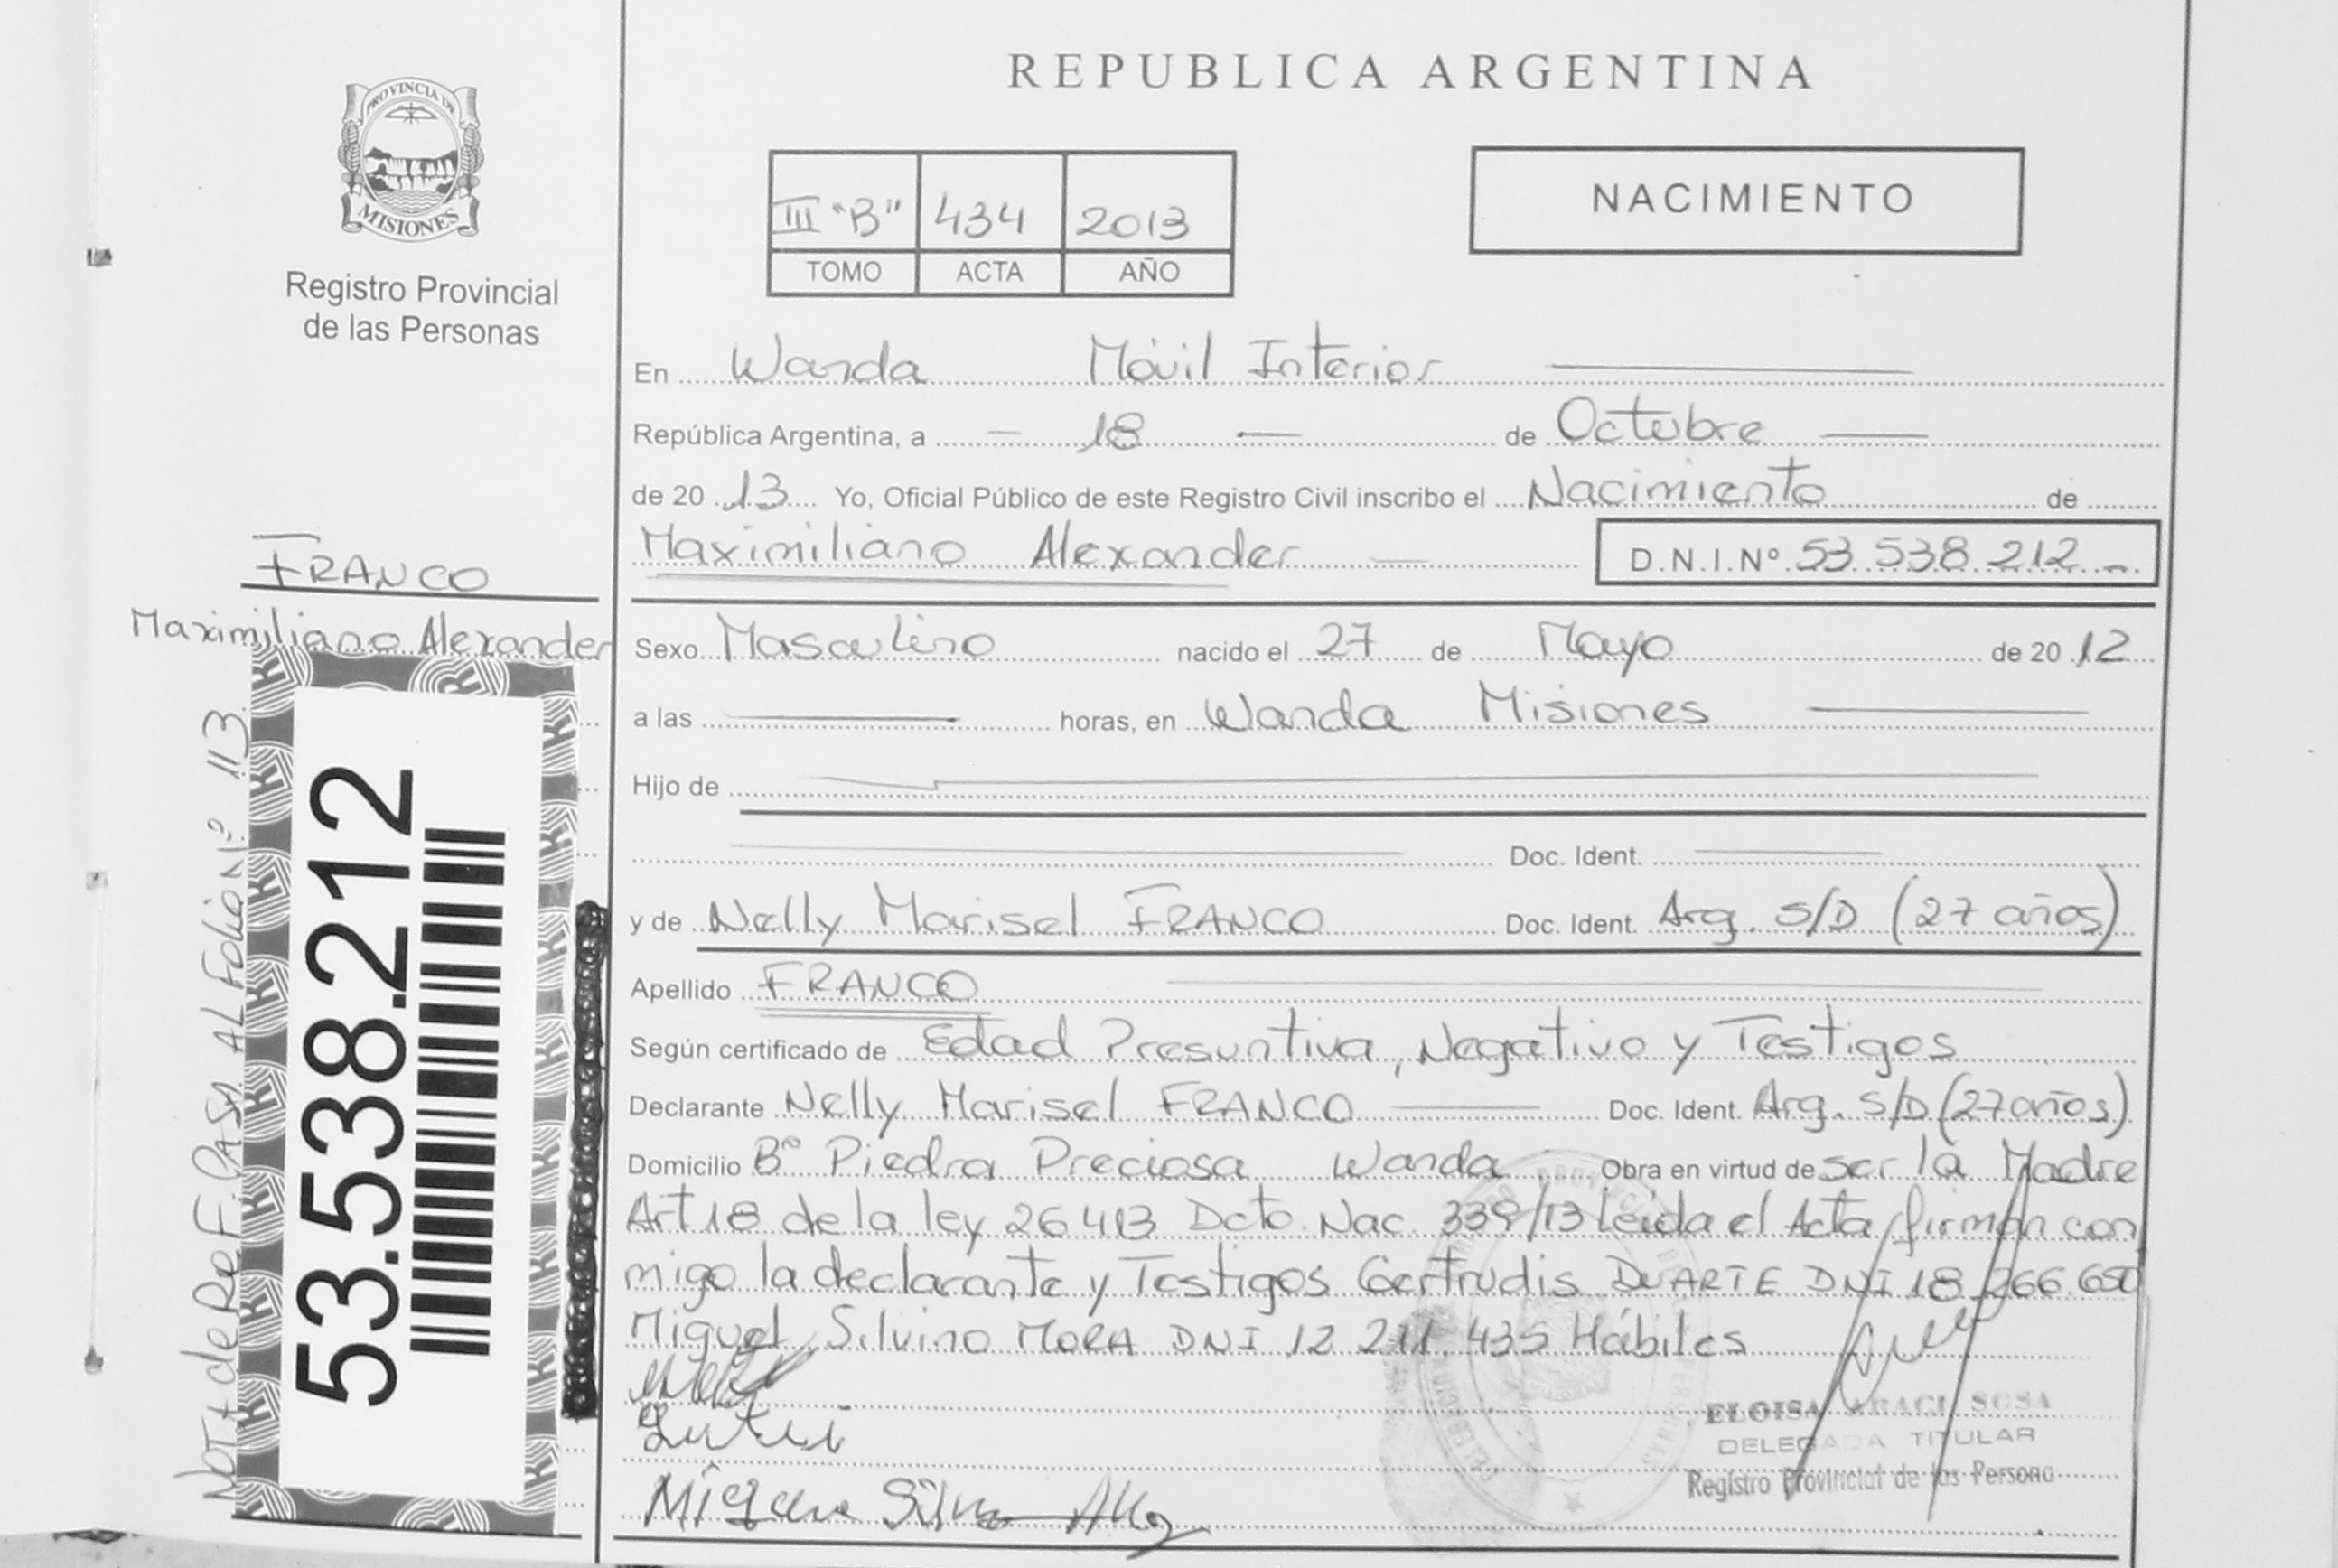 PROVINCIA DE
MISIONES
Registro Provincial
de las Personas
FRANCO
Maximiliano Alexander
53.538.212
Nota de Ref. Pasa Al Folio Nº 113
REPUBLICA ARGENTINA
III "B" 434 2013
TOMO ACTA AÑO
NACIMIENTO
En Wanda Móvil Interior
República Argentina, a 18 de Octubre
de 20 13 Yo, Oficial Público de este Registro Civil inscribo el Nacimiento de
Maximiliano Alexander D.N.I.Nº 53 538 212
Sexo Masculino nacido el 27 de Mayo de 20 12
a las horas, en Wanda Misiones
Hijo de
Doc. Ident.
y de Nelly Marisel FRANCO Doc. Ident. Arg. S/D (27 años)
Apellido FRANCO
Según certificado de Edad Presuntiva, Negativo y Testigos
Declarante Nelly Marisel FRANCO Doc. Ident. Arg. S/D (27 años)
Domicilio Bº Piedra Preciosa Wanda Obra en virtud de ser la Madre
Art 18 de la ley 26 413 Dcto. Nac. 339/13 leida el Acta firman con
migo la declarante y Testigos Gertrudis DUARTE DNI 18 266.650
Miguel Silvino MORA DNI 12 211. 435 Hábiles
ELOISA ARACI SOSA
DELEGADA TITULAR
Registro Provincial de las Persona